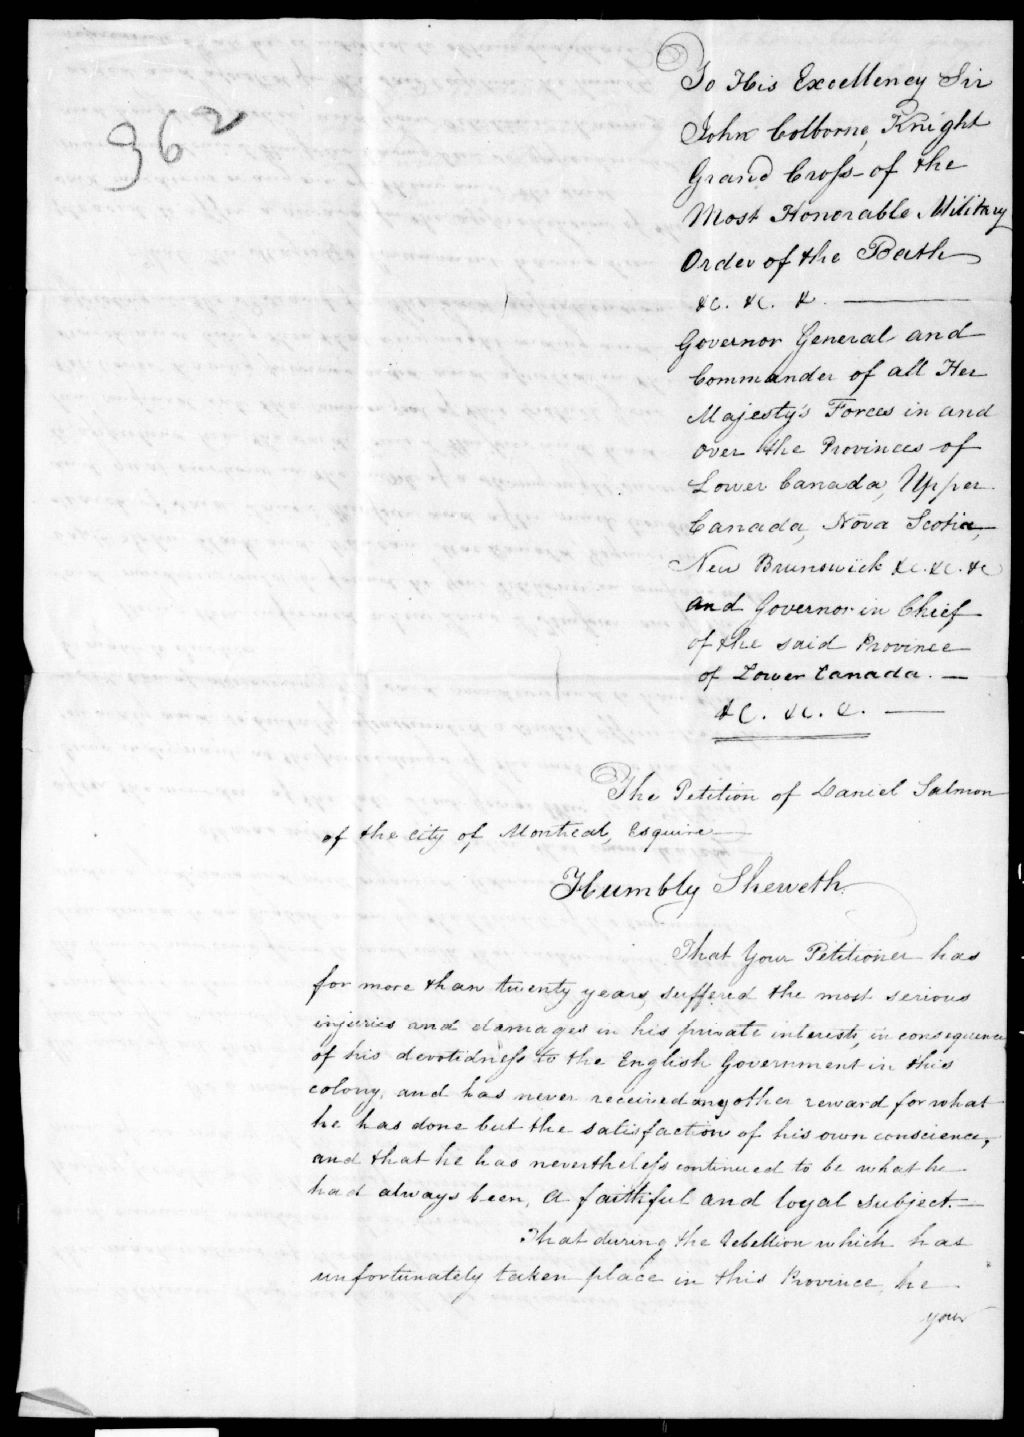 962
To His Excellency Sir
John Colborne, Knight
Grand Cross of the
Most Honorable Military
Order of the Bath
&c. &c. &
Governor General and
Commander of all Her
Majesty's Forces in and
over the Provinces of
Lower Canada, Upper
Canada, Nova Scotia,
New Brunswick &c. &c. &c
and Governor in Chief
of the said Province
of Lower Canada. —
&c. &c. &. —
The Petition of Daniel Salmon
of the city of Montreal, Esquire —
Humbly Sheweth.
That Your Petitioner has
for more than twenty years, suffered the most serious
injuries and damages in his private interests, in consequence
of his devotidness to the English Government in this
colony, and has never received any other reward for what
he has done but the satisfaction of his own conscience,
and that he has nevertheless continued to be what he
had always been, a faithful and loyal subject. —
That during the rebellion which has
unfortunately taken place in this Province, he
your